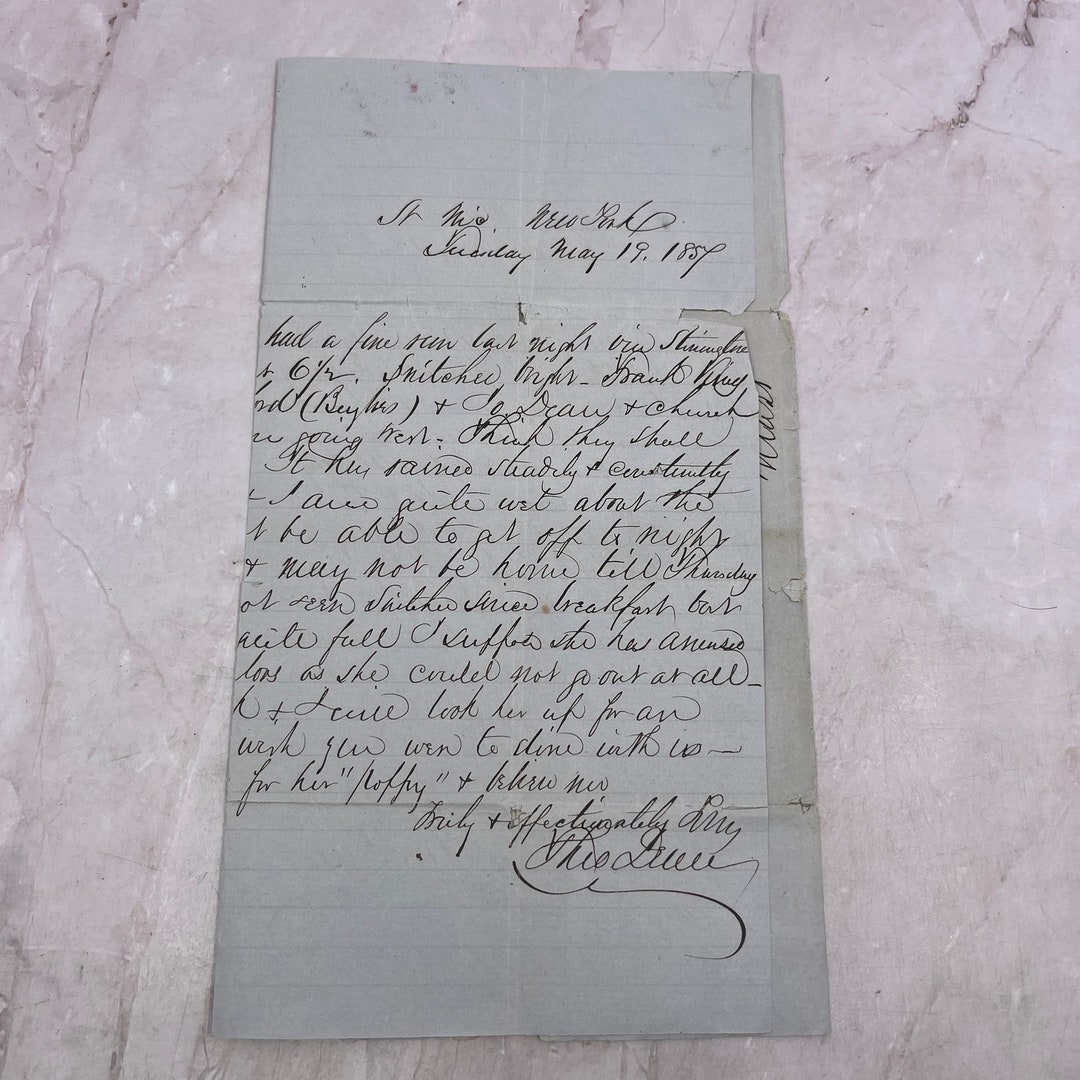 St Nic. New York
Tuesday May 19. 1857
had a fine run last night via Stonington
6½. Snitchee bright - Frank
(Baylies) & Jo Dean & Church
going West - Think they shall
It has rained steadily & constantly
I am quite wet about the
t be able to get off to night
& may not be home till Thursday
ot seen Snitchee since breakfast but
quite full I suppose she has amused
as she could not go out at all -
h & I will look her up for an
wish you were to dine with us -
for her "Poppy" & believe me
Truly & affectionately Yrs
Theo Dean